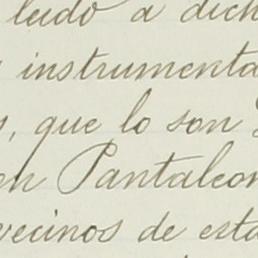 leido a dich
instrumenta
s, que lo son
en Pantaleon
vecinos de esta